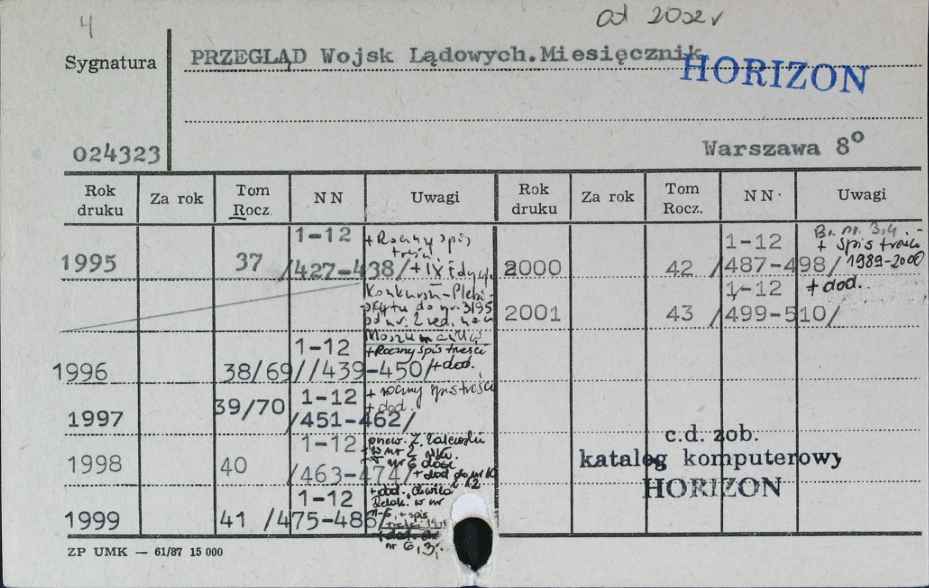 4
od 2002 r
Sygnatura
PRZEGLĄD Wojsk Lądowych.Miesięcznik
HORIZON
024323
Warszawa 8°
Rok druku Za rok Tom Rocz. NN Uwagi Rok druku Za rok Tom Rocz. NN Uwagi
1995 37 1-12 /427-438/ + Roczny spis treści + IX Edycji
Konkursu-Plebi-
scytu do nr. 3/95
2000 42 1-12 /487-498/ Br. nr. 3,4. - + spis treści 1989-2000
2001 43 1-12 /499-510/ + dod.
1996 38/69/ 1-12 /439-450/ + Roczny spis treści + dod.
1997 39/70 1-12 /451-462/ + roczny spis treści + dod.
1998 40 1-12 /463-474/ + dod do nr 10 i 12
1999 41 1-12 /475-486/ + dod.
nr 6,
c.d. zob.
katalog komputerowy
HORIZON
ZP UMK — 61/87 15 000